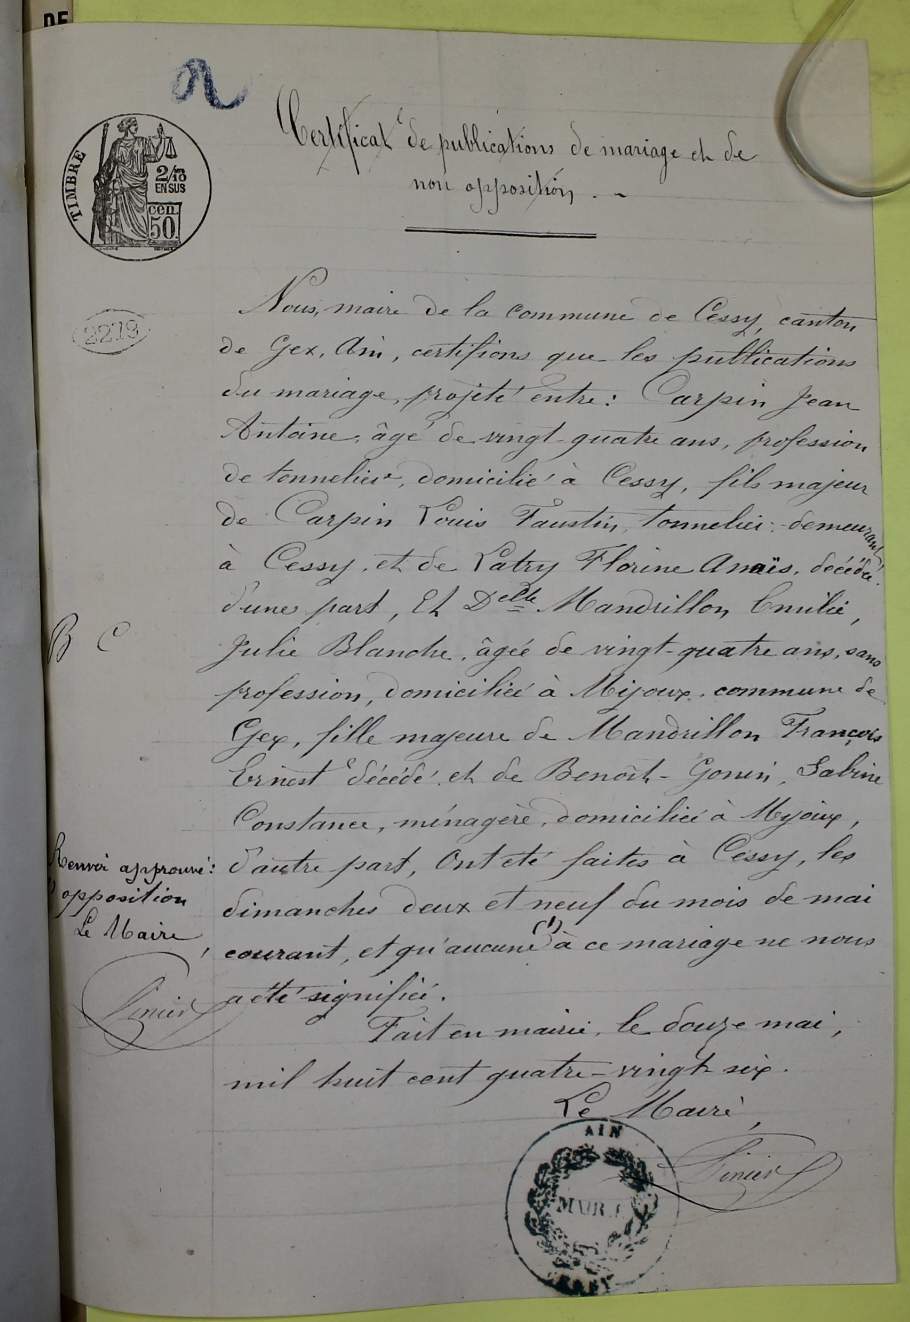 DE
Certificat de publications de mariage et de
non opposition. -
TIMBRE
2/10
EN SUS
cen.
50
2219
Nous, maire de la commune de Cessy, canton
de Gex, Ain, certifions que les publications
du mariage, projeté entre : Carpin Jean
Antoine, âgé de vingt-quatre ans, profession
de tonnelier, domicilié à Cessy, fils majeur
de Carpin Louis Faustin, tonnelier, demeurant
à Cessy, et de Latry Florine Anaïs, décédée.
d'une part, Et Delle Mandrillon, Emilie,
B C
Julie Blanche, âgée de vingt-quatre ans, sans
profession, domiciliée à Mijoux, commune de
Gex, fille majeure de Mandrillon François
Ernest décédé et de Benoît-Gonin, Sabine
Constance, ménagère, domiciliée à Mijoux,
d'autre part, Ont été faites à Cessy, les
dimanches deux et neuf du mois de mai
courant, et qu'aucune (1) à ce mariage ne nous
a été signifiée.
Renvoi approuvé :
(1) opposition
Le Maire,
Fait en mairie, le douze mai,
mil huit cent quatre-vingt-six.
Le Maire,
AIN
MAIRIE